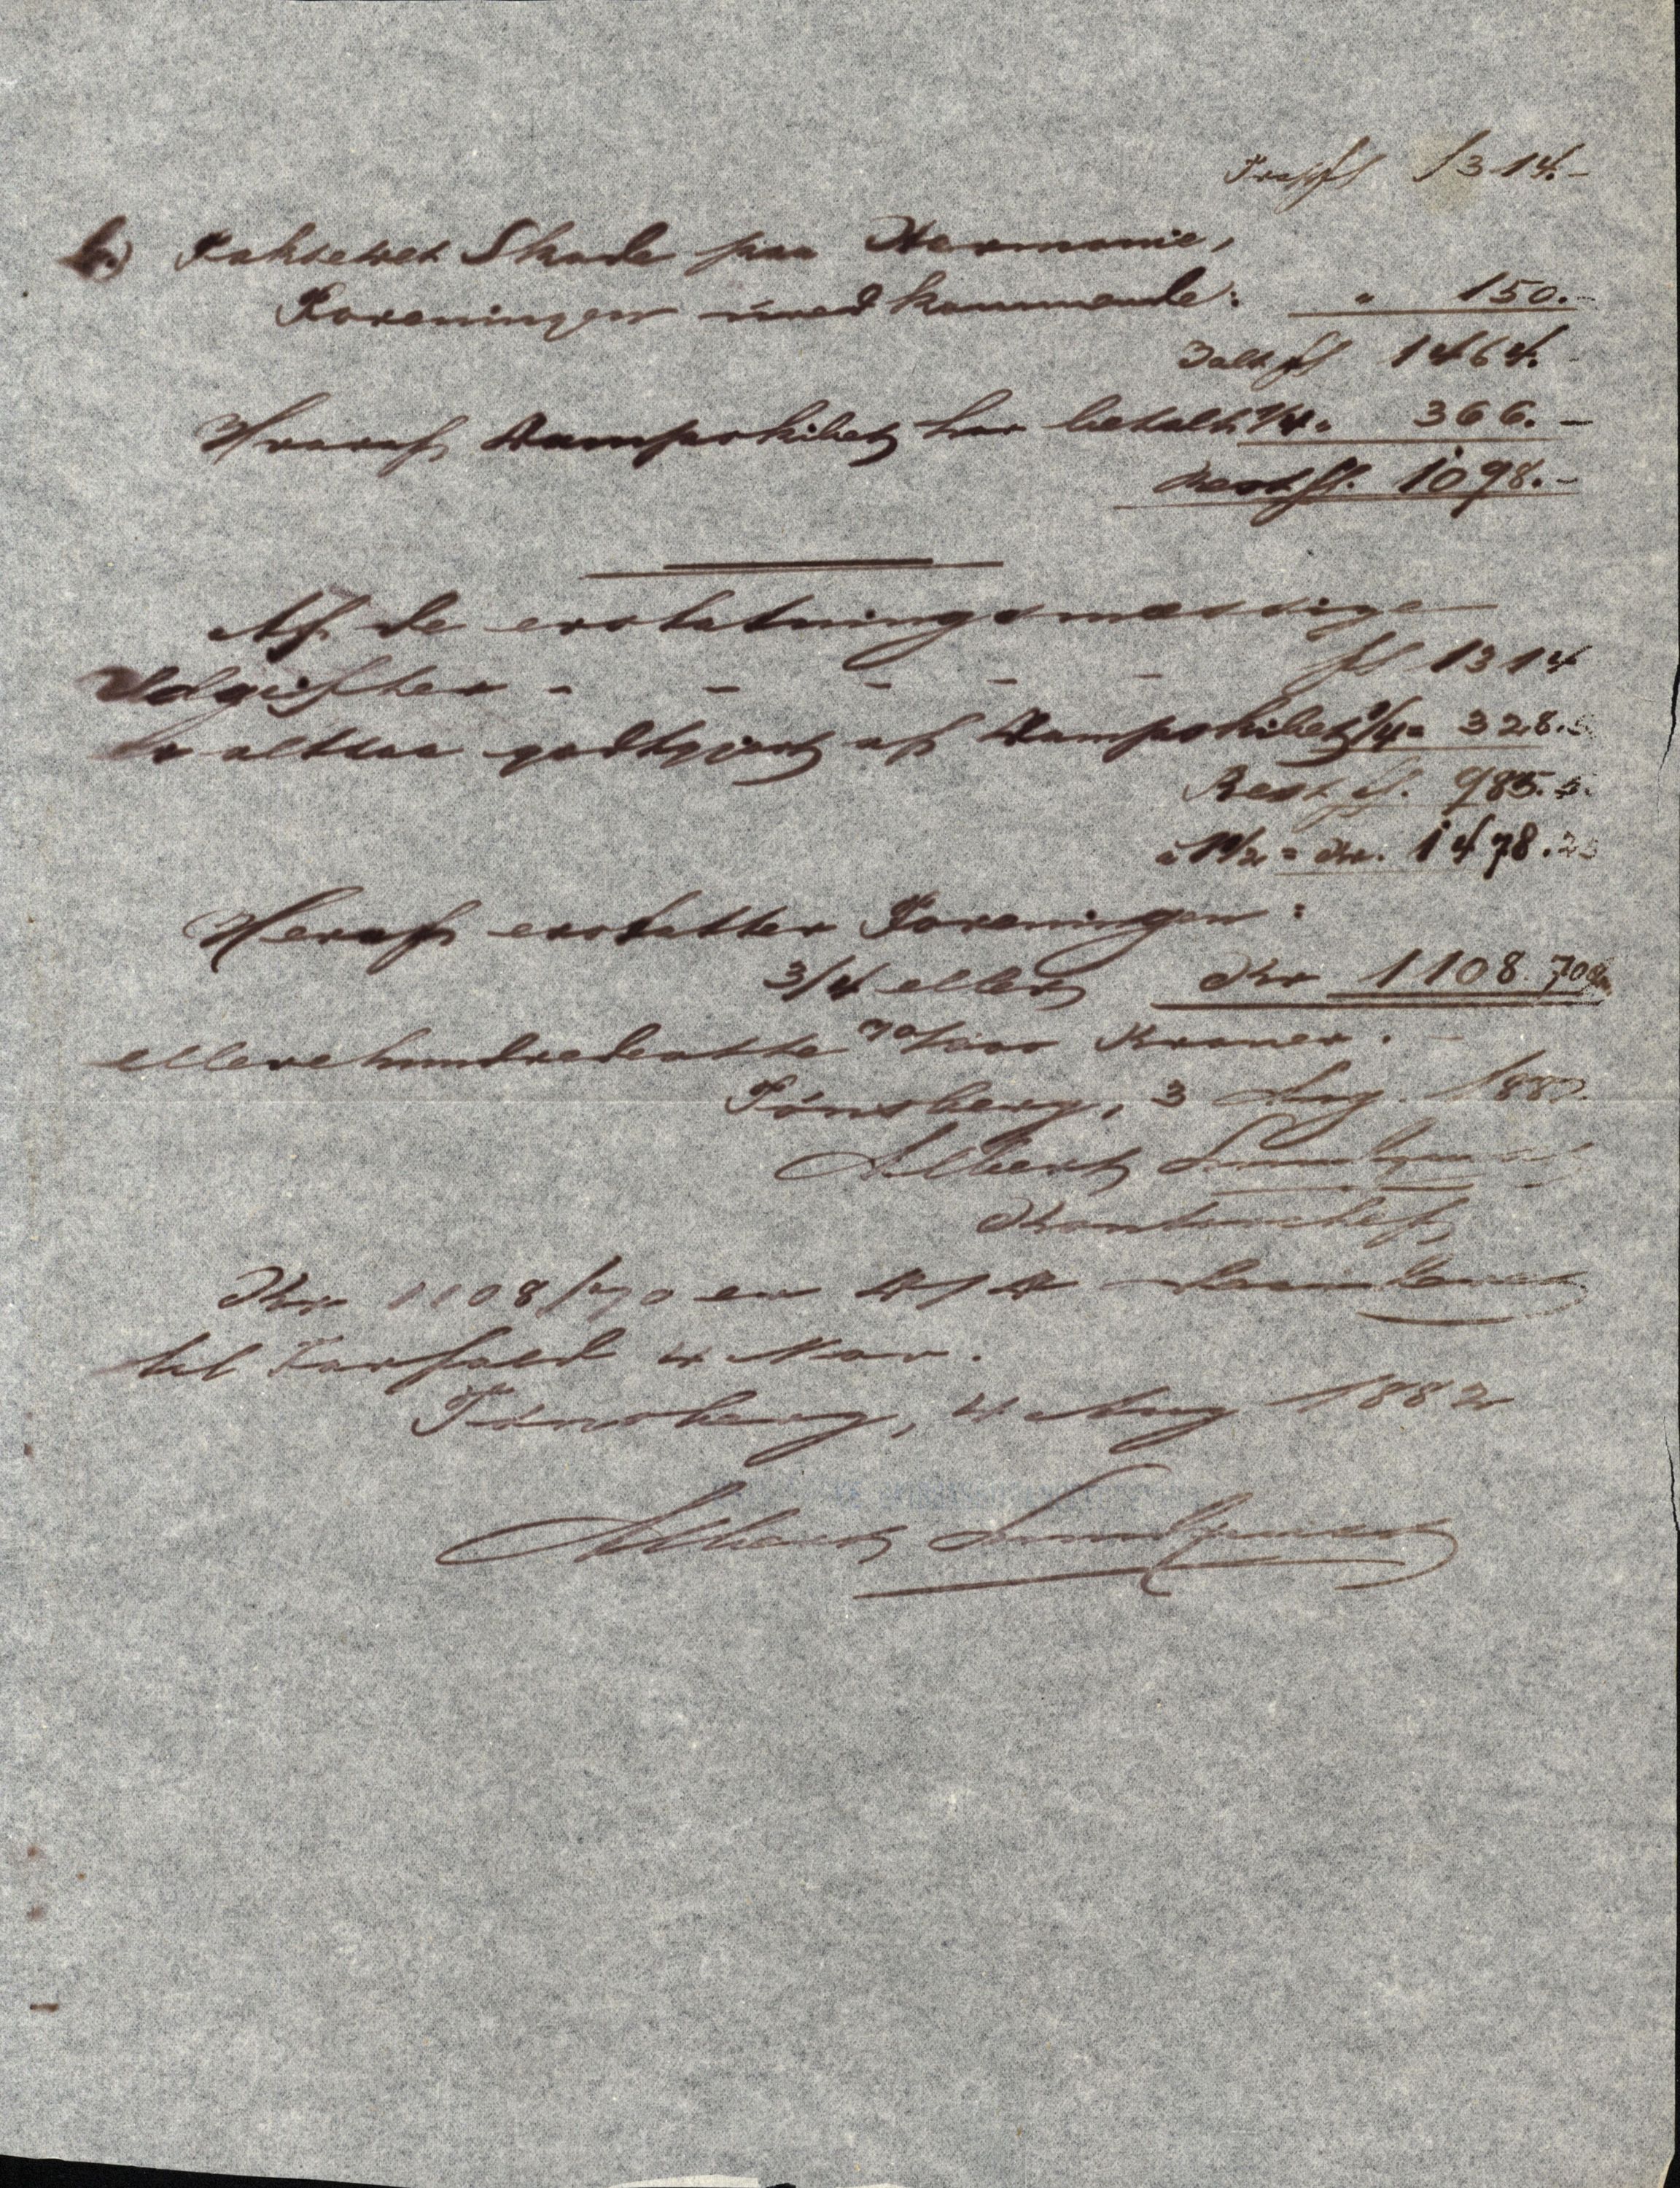 Trspf fl 1314.-
b.) Taxseret Skade paa Hermanie,
Foreningen uvedkommende: " 150.-
Ialt fl 1464.-
Hvoraf Dampskibet har betalt 1/4 " 366.-
Rest fl. 1098.-
Af de erstatningsmæssige
Udgifter - - - - - fl 1314
er altsaa godtgjort af Dampskibet 1/4 = 328.5
Rest fl. 985.5.
à 1 1/2 = Kr. 1478.25
Heraf erstatter Foreningen:
3/4 eller Kr 1108.70
ellevehundredeotte 70/100 Kroner.
Tönsberg, 3 Aug. 1882.
Albert
Kontorchef
Kr 1108/70 er 4/4
til Forfald 4 Nov.
Tönsberg, 4 Aug 1882
Albert